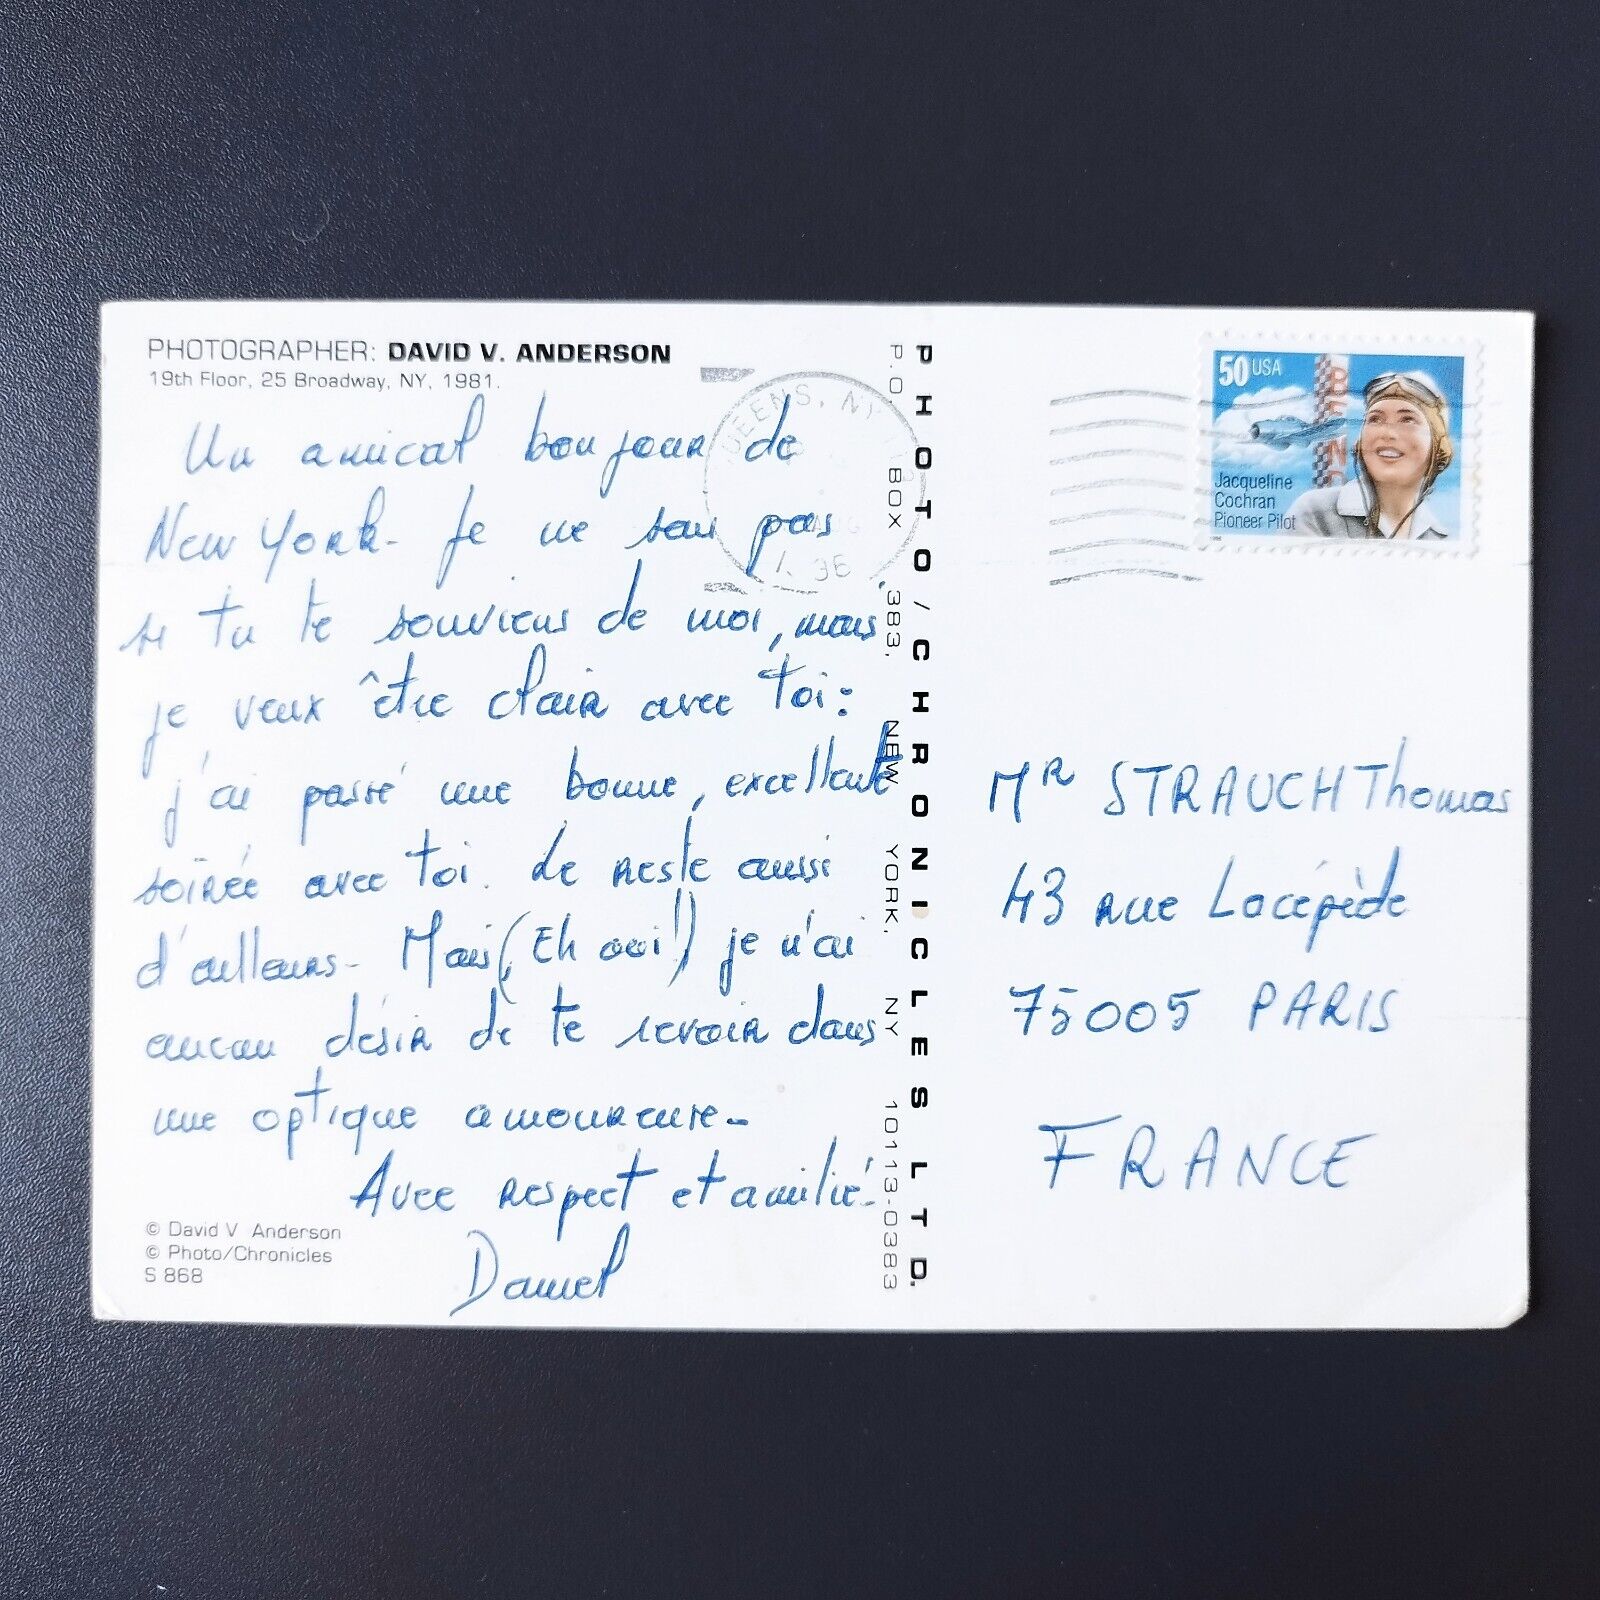 PHOTOGRAPHER: DAVID V. ANDERSON
19th Floor, 25 Broadway, NY, 1981.
Un amical bonjour de
New York - Je ne sais pas
si tu te souviens de moi, mais
je veux être clair avec toi:
j'ai passé une bonne, excellente
soirée avec toi. Le reste aussi
d'ailleurs - Mais (Eh oui!) je n'ai
aucun désir de te revoir dans
une optique amoureuse -
Avec respect et amitié.
Daniel
© David V Anderson
© Photo/Chronicles
S 868
PHOTO/CHRONICLES LTD.
P.O. BOX 383, NEW YORK, NY 10113-0383
QUEENS, NY
AUG
96
50 USA
Jacqueline
Cochran
Pioneer Pilot
Mr STRAUCH Thomas
43 rue Lacépède
75005 PARIS
FRANCE